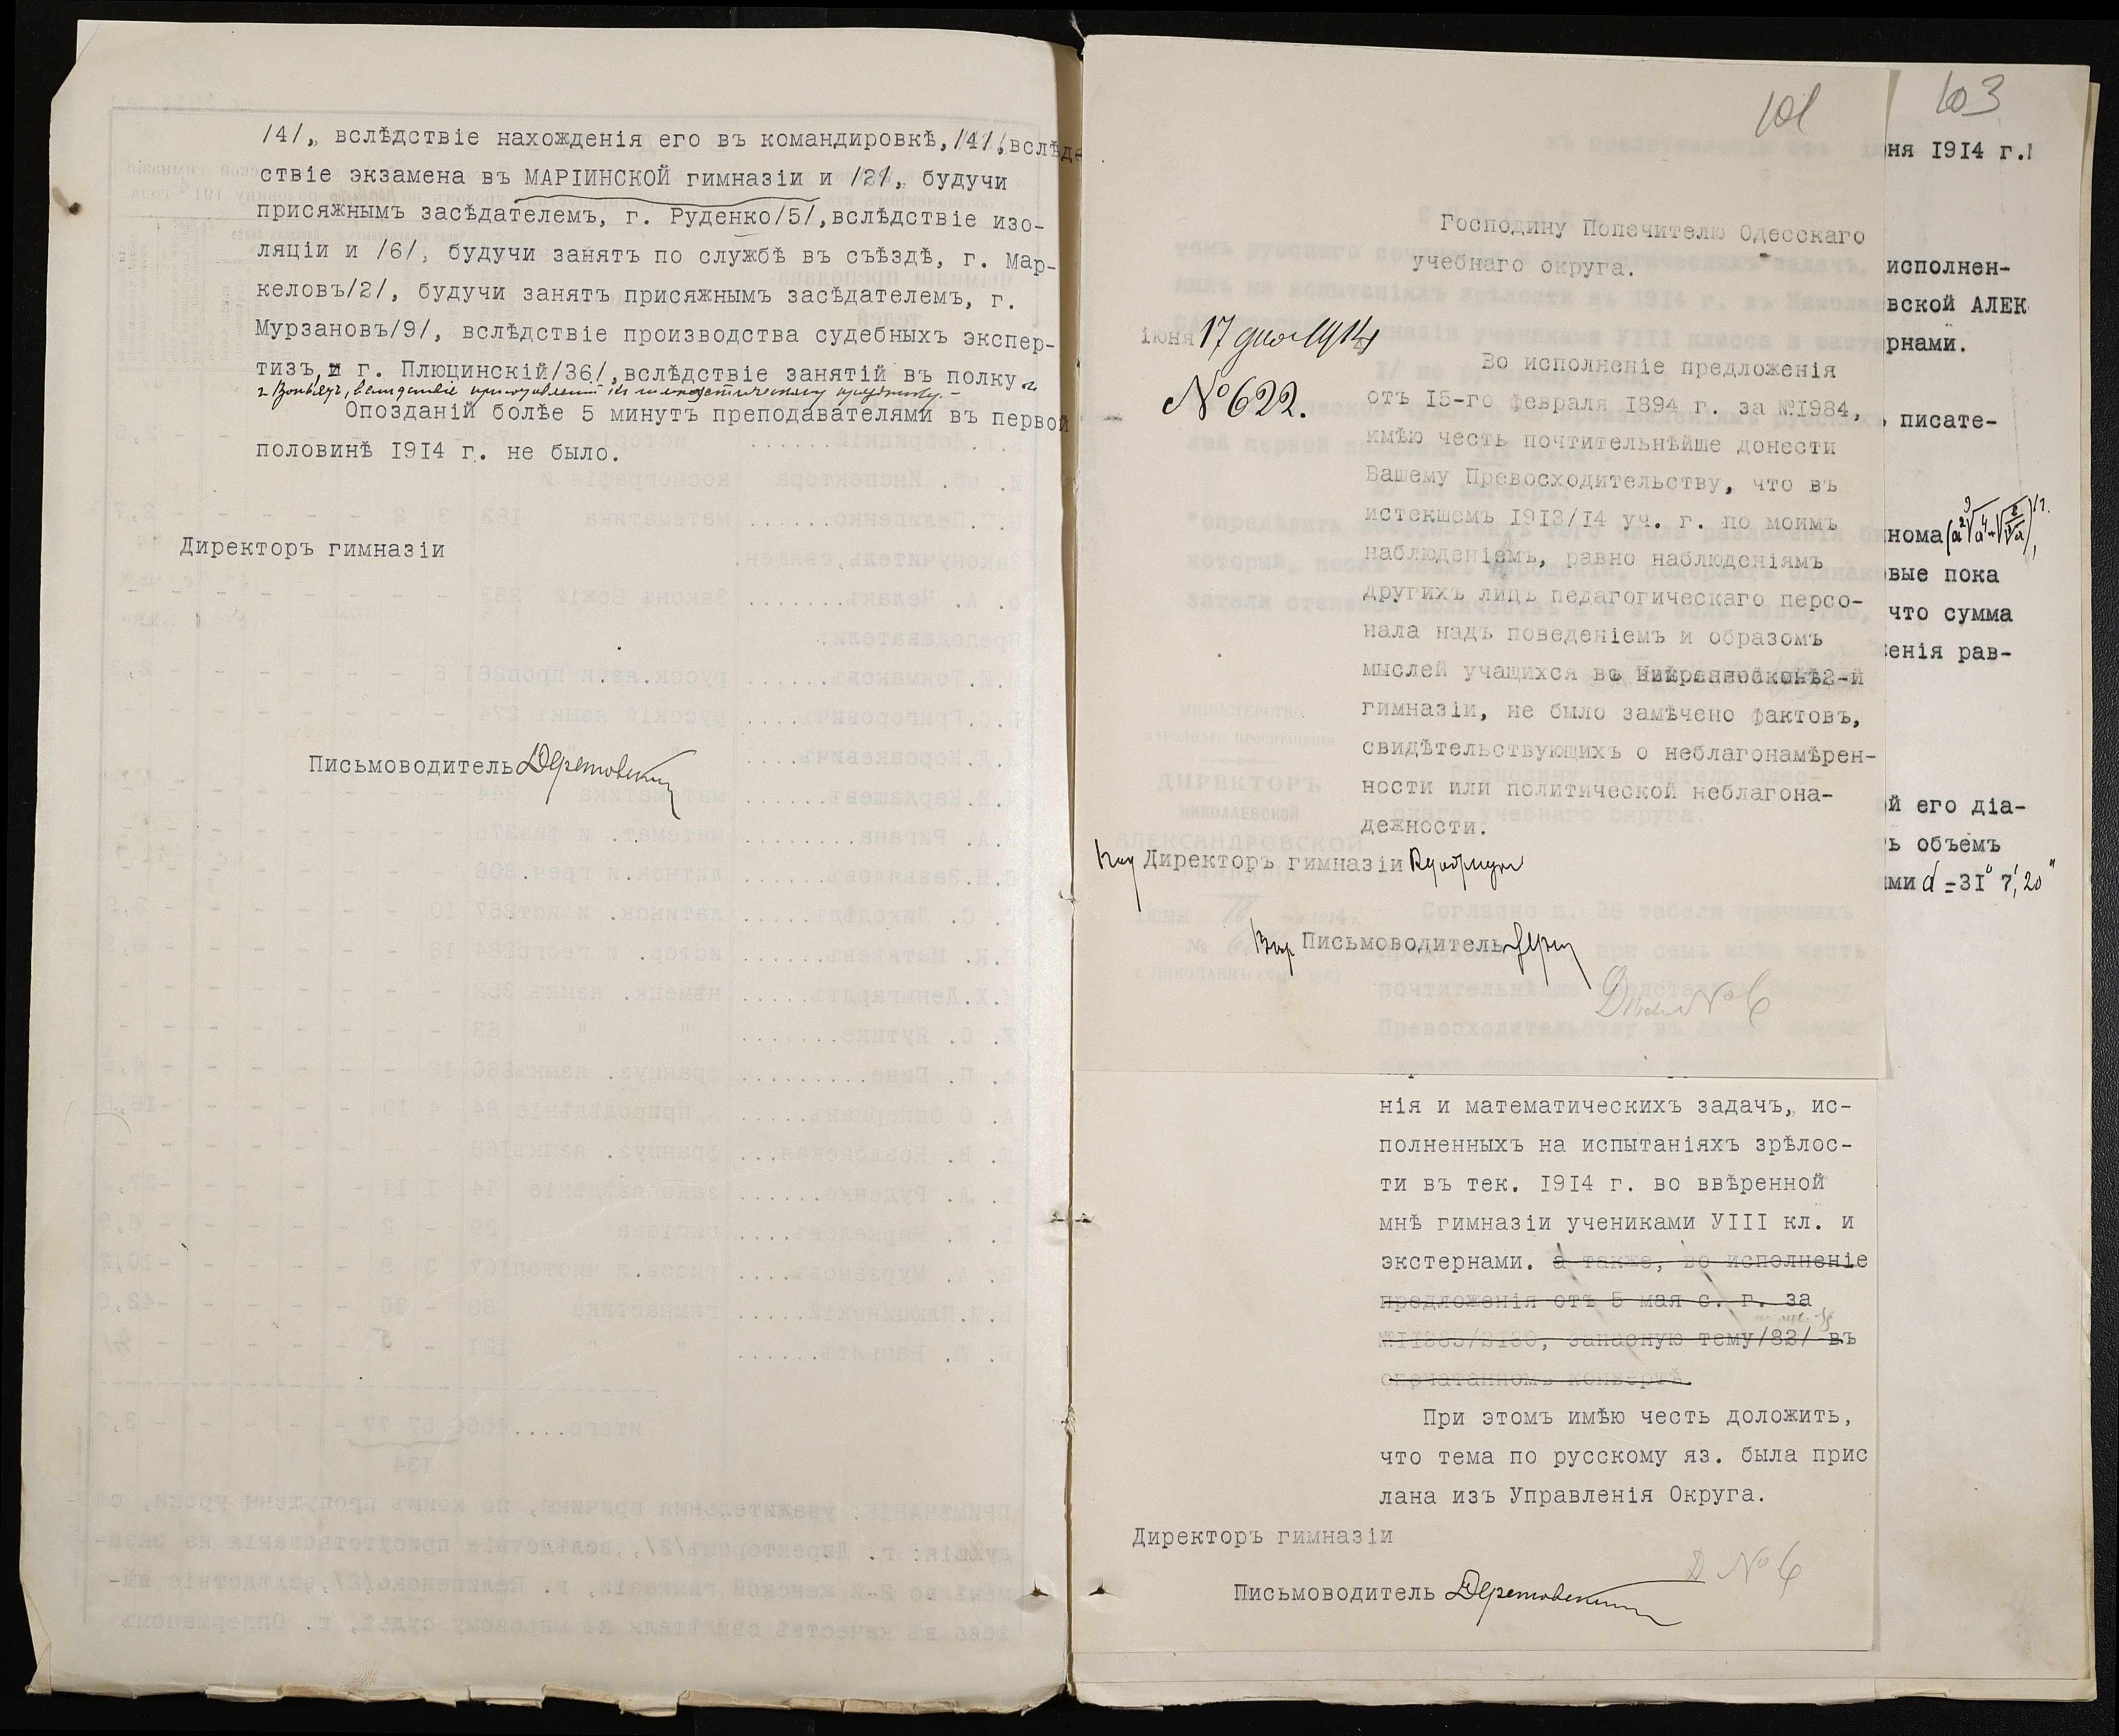 /4/, вслѣдствіе нахожденія его въ командировкѣ, /4/, вслѣд-
ствіе экзамена въ МАРІИНСКОЙ гимназіи и /2/, будучи
присяжнымъ засѣдателемъ, г. Руденко/5/, вслѣдствіе изо-
ляціи и /6/, будучи занятъ по службѣ въ съѣздѣ, г. Мар-
келовъ/2/, будучи занятъ присяжнымъ засѣдателемъ, г.
Мурзановъ/9/, вслѣдствіе производства судебныхъ экспер-
тизъ, и г. Плюцинскій/36/, вслѣдствіе занятій въ полку и
Опозданій болѣе 5 минутъ преподавателями въ первой
половинѣ 1914 г. не было.
Директоръ гимназіи
Письмоводитель
101
Господину Попечителю Одесскаго
учебнаго округа.
іюня 17 дня 1914
№ 622.
Во исполненіе предложенія
отъ 15-го февраля 1894 г. за №1984,
имѣю честь почтительнѣйше донести
Вашему Превосходительству, что въ
истекшемъ 1913/14 уч. г. по моимъ
наблюденіямъ, равно наблюденіямъ
другихъ лицъ педагогическаго персо-
нала надъ поведеніемъ и образомъ
мыслей учащихся въ
гимназіи, не было замѣчено фактовъ,
свидѣтельствующихъ о неблагонамѣрен-
ности или политической неблагона-
дежности.
Директоръ гимназіи
Письмоводитель
№ 6
нія и математическихъ задачъ, ис-
полненныхъ на испытаніяхъ зрѣлос-
ти въ тек. 1914 г. во ввѣренной
мнѣ гимназіи учениками УІІІ кл. и
экстернами. а также, во исполненіе
предложенія отъ 5 мая с. г. за
запасную тему/82/ въ
опечатанномъ конвертѣ.
При этомъ имѣю честь доложить,
что тема по русскому яз. была прис
лана изъ Управленія Округа.
Директоръ гимназіи
Д № 6
Письмоводитель
103
ня 1914 г.
исполнен-
вской АЛЕК
рнами.
, писате-
нома
вые пока
что сумма
енія рав-
й его діа-
ь объемъ
ми d = 31° 7' 20"